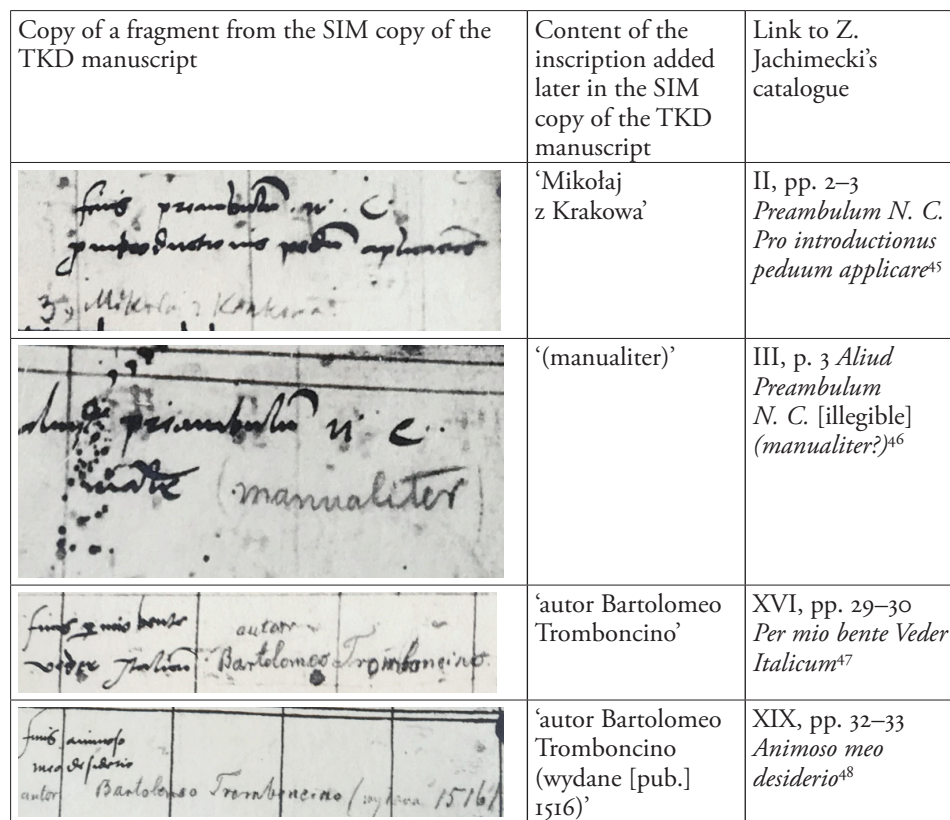 Copy of a fragment from the SIM copy of the
TKD manuscript
Content of the
inscription added
later in the SIM
copy of the TKD
manuscript
Link to Z.
Jachimecki’s
catalogue
finis priambulū n. C.
3, Mikołaj z Krakowa
‘Mikołaj
z Krakowa’
II, pp. 2–3
Preambulum N. C.
Pro introductionus
peduum applicare⁴⁵
priambulū n c.
(manualiter)
‘(manualiter)’
III, p. 3 Aliud
Preambulum
N. C. [illegible]
(manualiter?)⁴⁶
finis p mio bente
autor
veder Italicū Bartolomeo Tromboncino
‘autor Bartolomeo
Tromboncino’
XVI, pp. 29–30
Per mio bente Veder
Italicum⁴⁷
finis animoso
meo desiderio
autor Bartolomeo Tromboncino (wydane 1516)
‘autor Bartolomeo
Tromboncino
(wydane [pub.]
1516)’
XIX, pp. 32–33
Animoso meo
desiderio⁴⁸